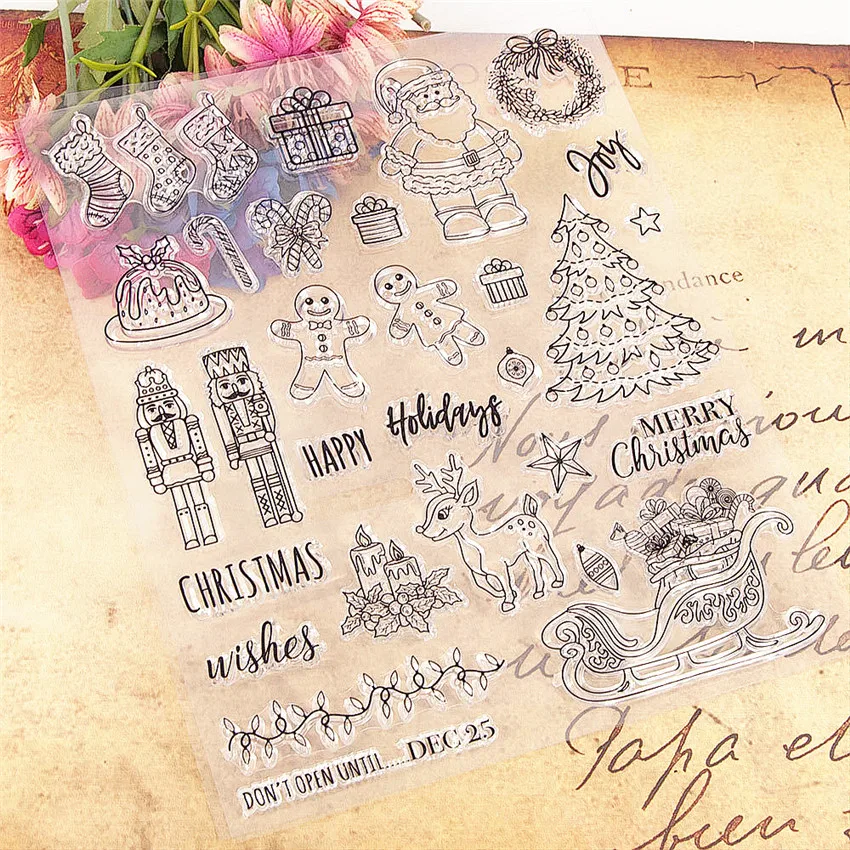 Joy
ndance
HAPPY
Holidays
MERRY
Christmas
CHRISTMAS
wishes
DON'T OPEN UNTIL.....DEC 25
Nous
Papa et
bien